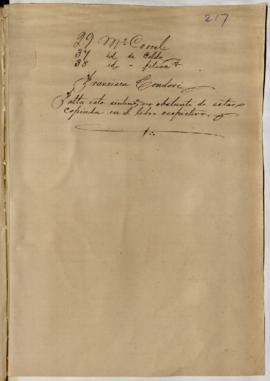 217
29 Mo Conde
37 id de Cdda
38 id - felina
Francisca Condori
Falta esta sentencia no obstante de estar
copiada en el libro respectivo.